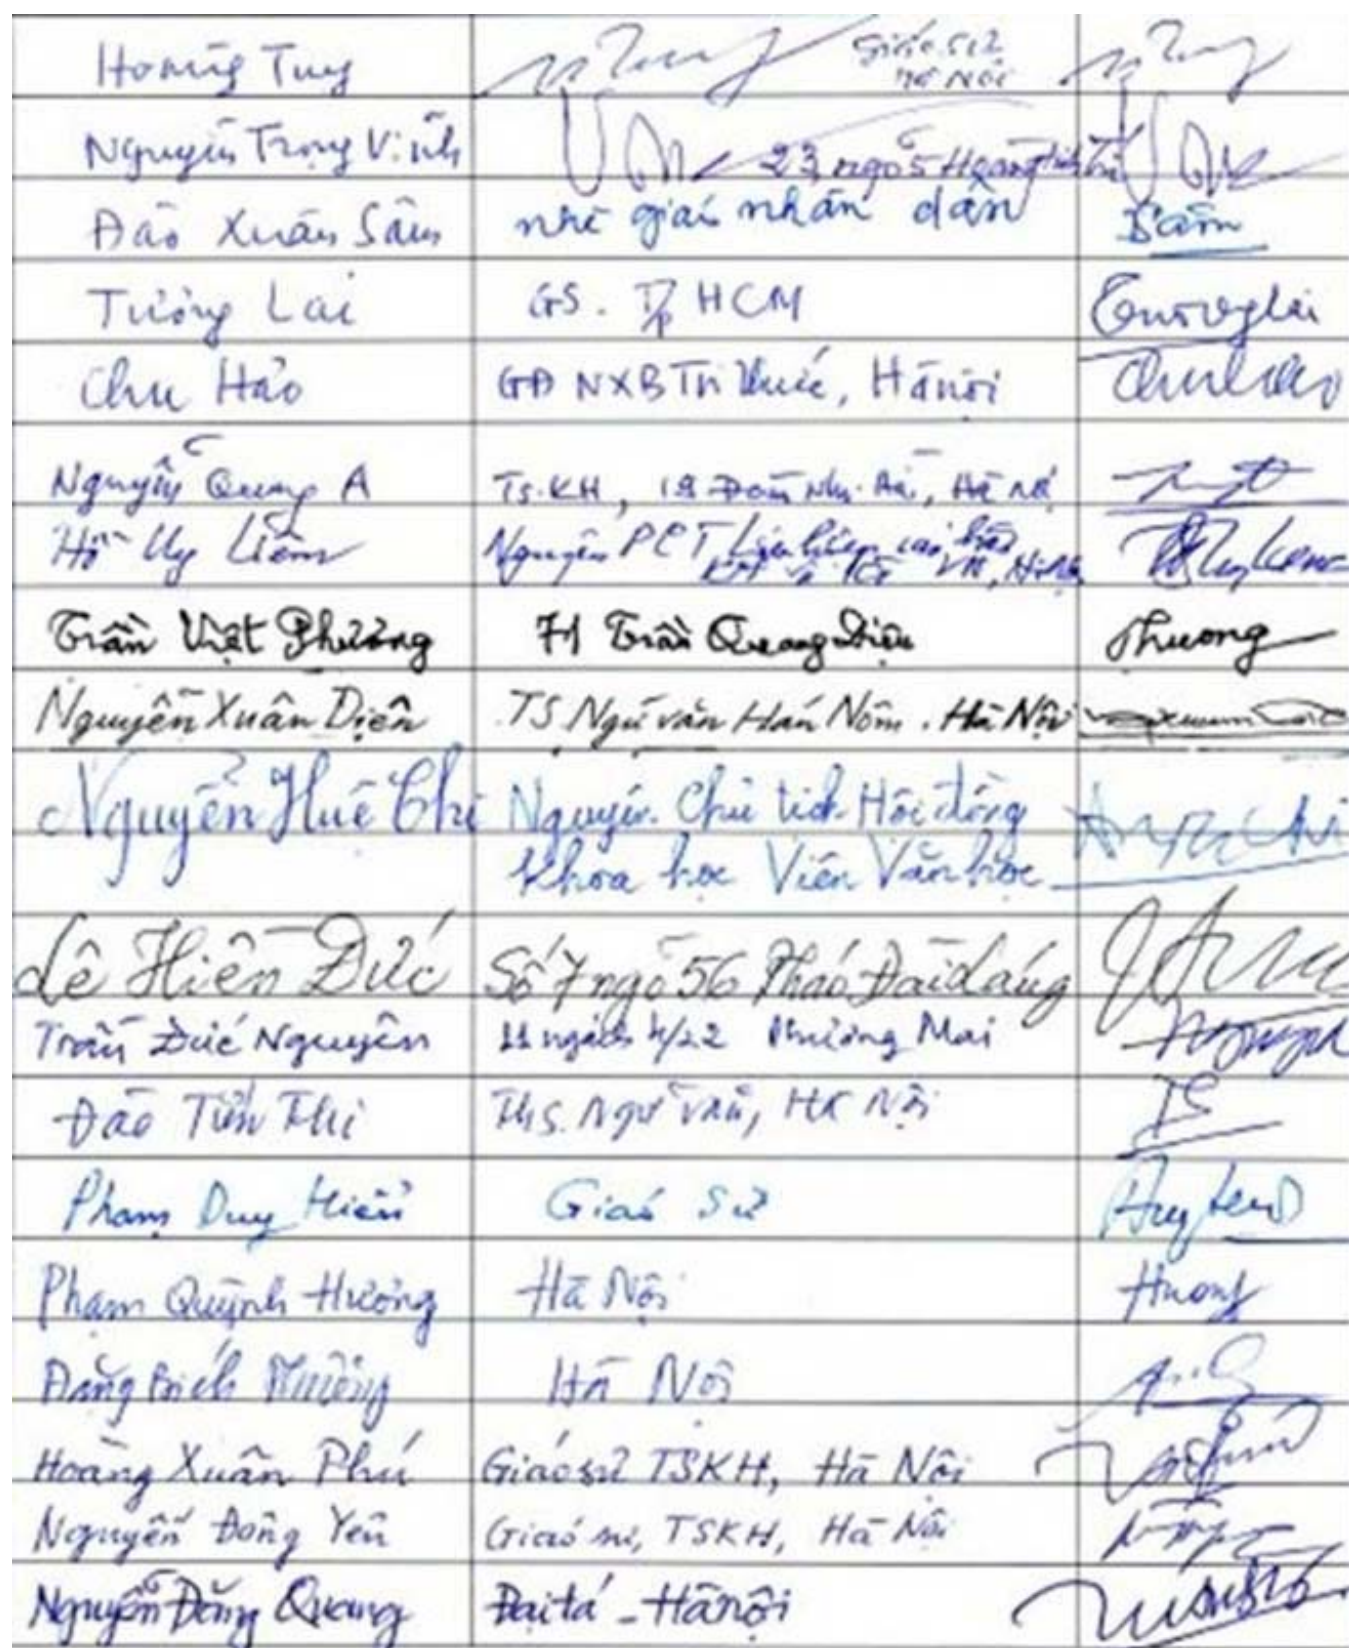 Hoàng Tụy Giáo sư Hà Nội
Nguyễn Trọng Vĩnh 23 ngõ 5 Hoàng Tích Trí
Đào Xuân Sâm nhà giáo nhân dân Sâm
Tương Lai GS. Tp HCM Tương lai
Chu Hảo GĐ NXB Tri thức, Hà nội Chu hảo
Nguyễn Quang A Ts.KH, Hà Nội
Hồ Uy Liêm Nguyên PCT Liên hiệp các hội
KH và KT VN, Hà Nội
Trần Việt Phương 71 Trần Quang Diệu Phuong
Nguyễn Xuân Diện TS Ngữ văn Hán Nôm. Hà Nội
Nguyễn Huệ Chi Nguyên Chủ tịch Hội đồng
Khoa học Viện Văn học
Lê Hiền Đức Số 7 ngõ 56 Pháo Đài Láng
Trần Đức Nguyên 11 ngách 4/22 Phương Mai
Đào Tiến Thi Ths. Ngữ văn, Hà Nội
Phạm Duy Hiển Giáo Sư
Phạm Quỳnh Hương Hà Nội Huong
Đặng Bích Phượng Hà Nội
Hoàng Xuân Phú Giáo sư TSKH, Hà Nội
Nguyễn Đông Yên Giáo sư, TSKH, Hà Nội
Nguyễn Đăng Quang Đại tá - Hà nội